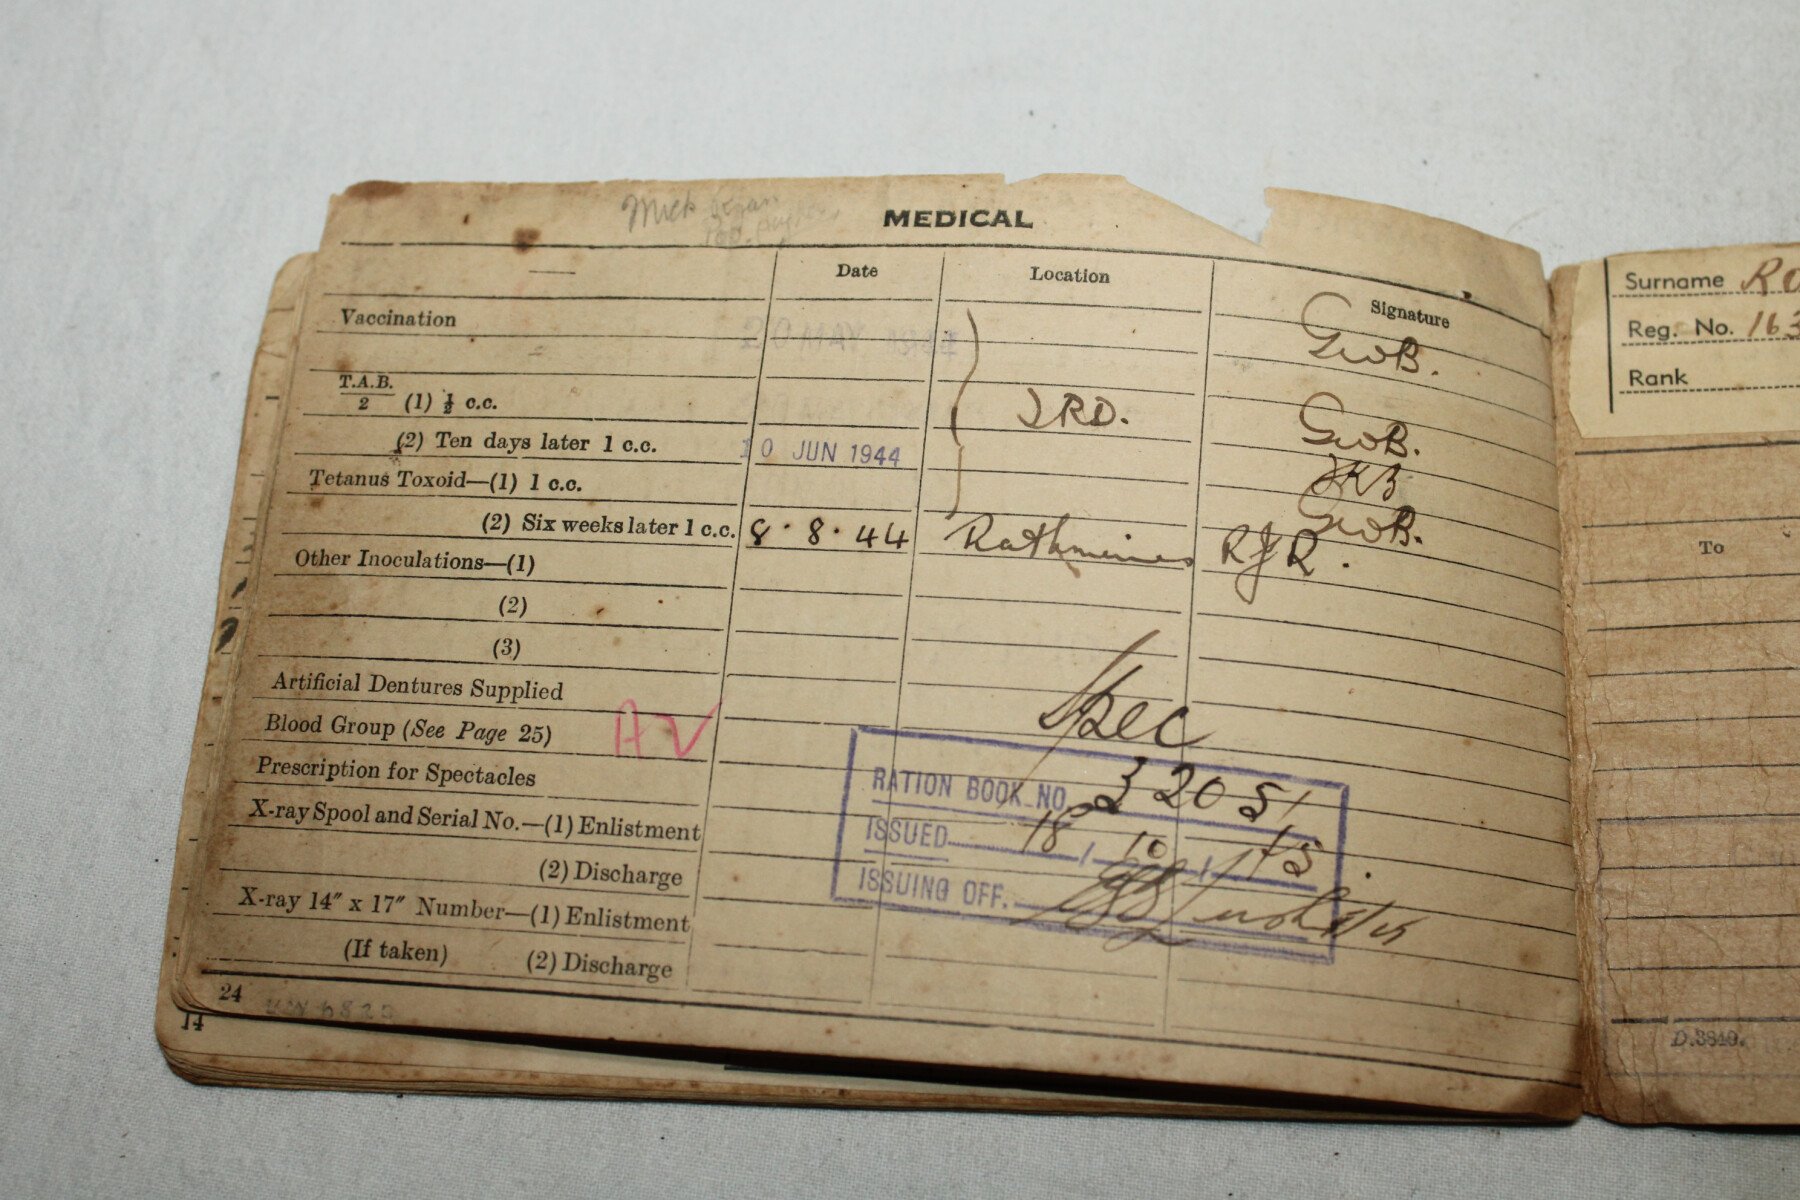 Mick
MEDICAL
Date Location Signature
Vaccination 20 MAY 1944 GWB.
T.A.B.
2 (1) ½ c.c. 2RD. GWB.
(2) Ten days later 1 c.c. 10 JUN 1944
Tetanus Toxoid—(1) 1 c.c. GWB.
(2) Six weeks later 1 c.c. 8.8.44 Rathmines RJR.
Other Inoculations—(1)
(2)
(3)
Artificial Dentures Supplied
Blood Group (See Page 25) A2
Prescription for Spectacles
X-ray Spool and Serial No.—(1) Enlistment
(2) Discharge
X-ray 14″ x 17″ Number—(1) Enlistment
(If taken) (2) Discharge
24
14
Spec
RATION BOOK NO. 32051
ISSUED 18 / 10 / 45
ISSUING OFF.
Surname RO
Reg. No. 163
Rank
To
D.3840.